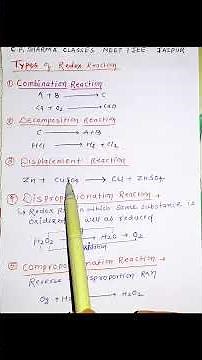 C.P. SHARMA CLASSES NEET | JEE JAIPUR
Types of Redox Reaction
① Combination Reaction
A + B → C
② Decomposition Reaction
C → A+B
③ Displacement Reaction
Zn + CuSO₄ → Cu + ZnSO₄
④ Disproportionation Reaction
Redox Rxn in which same substance is
oxidized as well as reduced
H₂O₂ → H₂O + O₂
⑤ Comproportionation Reaction
Reverse of Disproportion RXN
→ H₂O₂